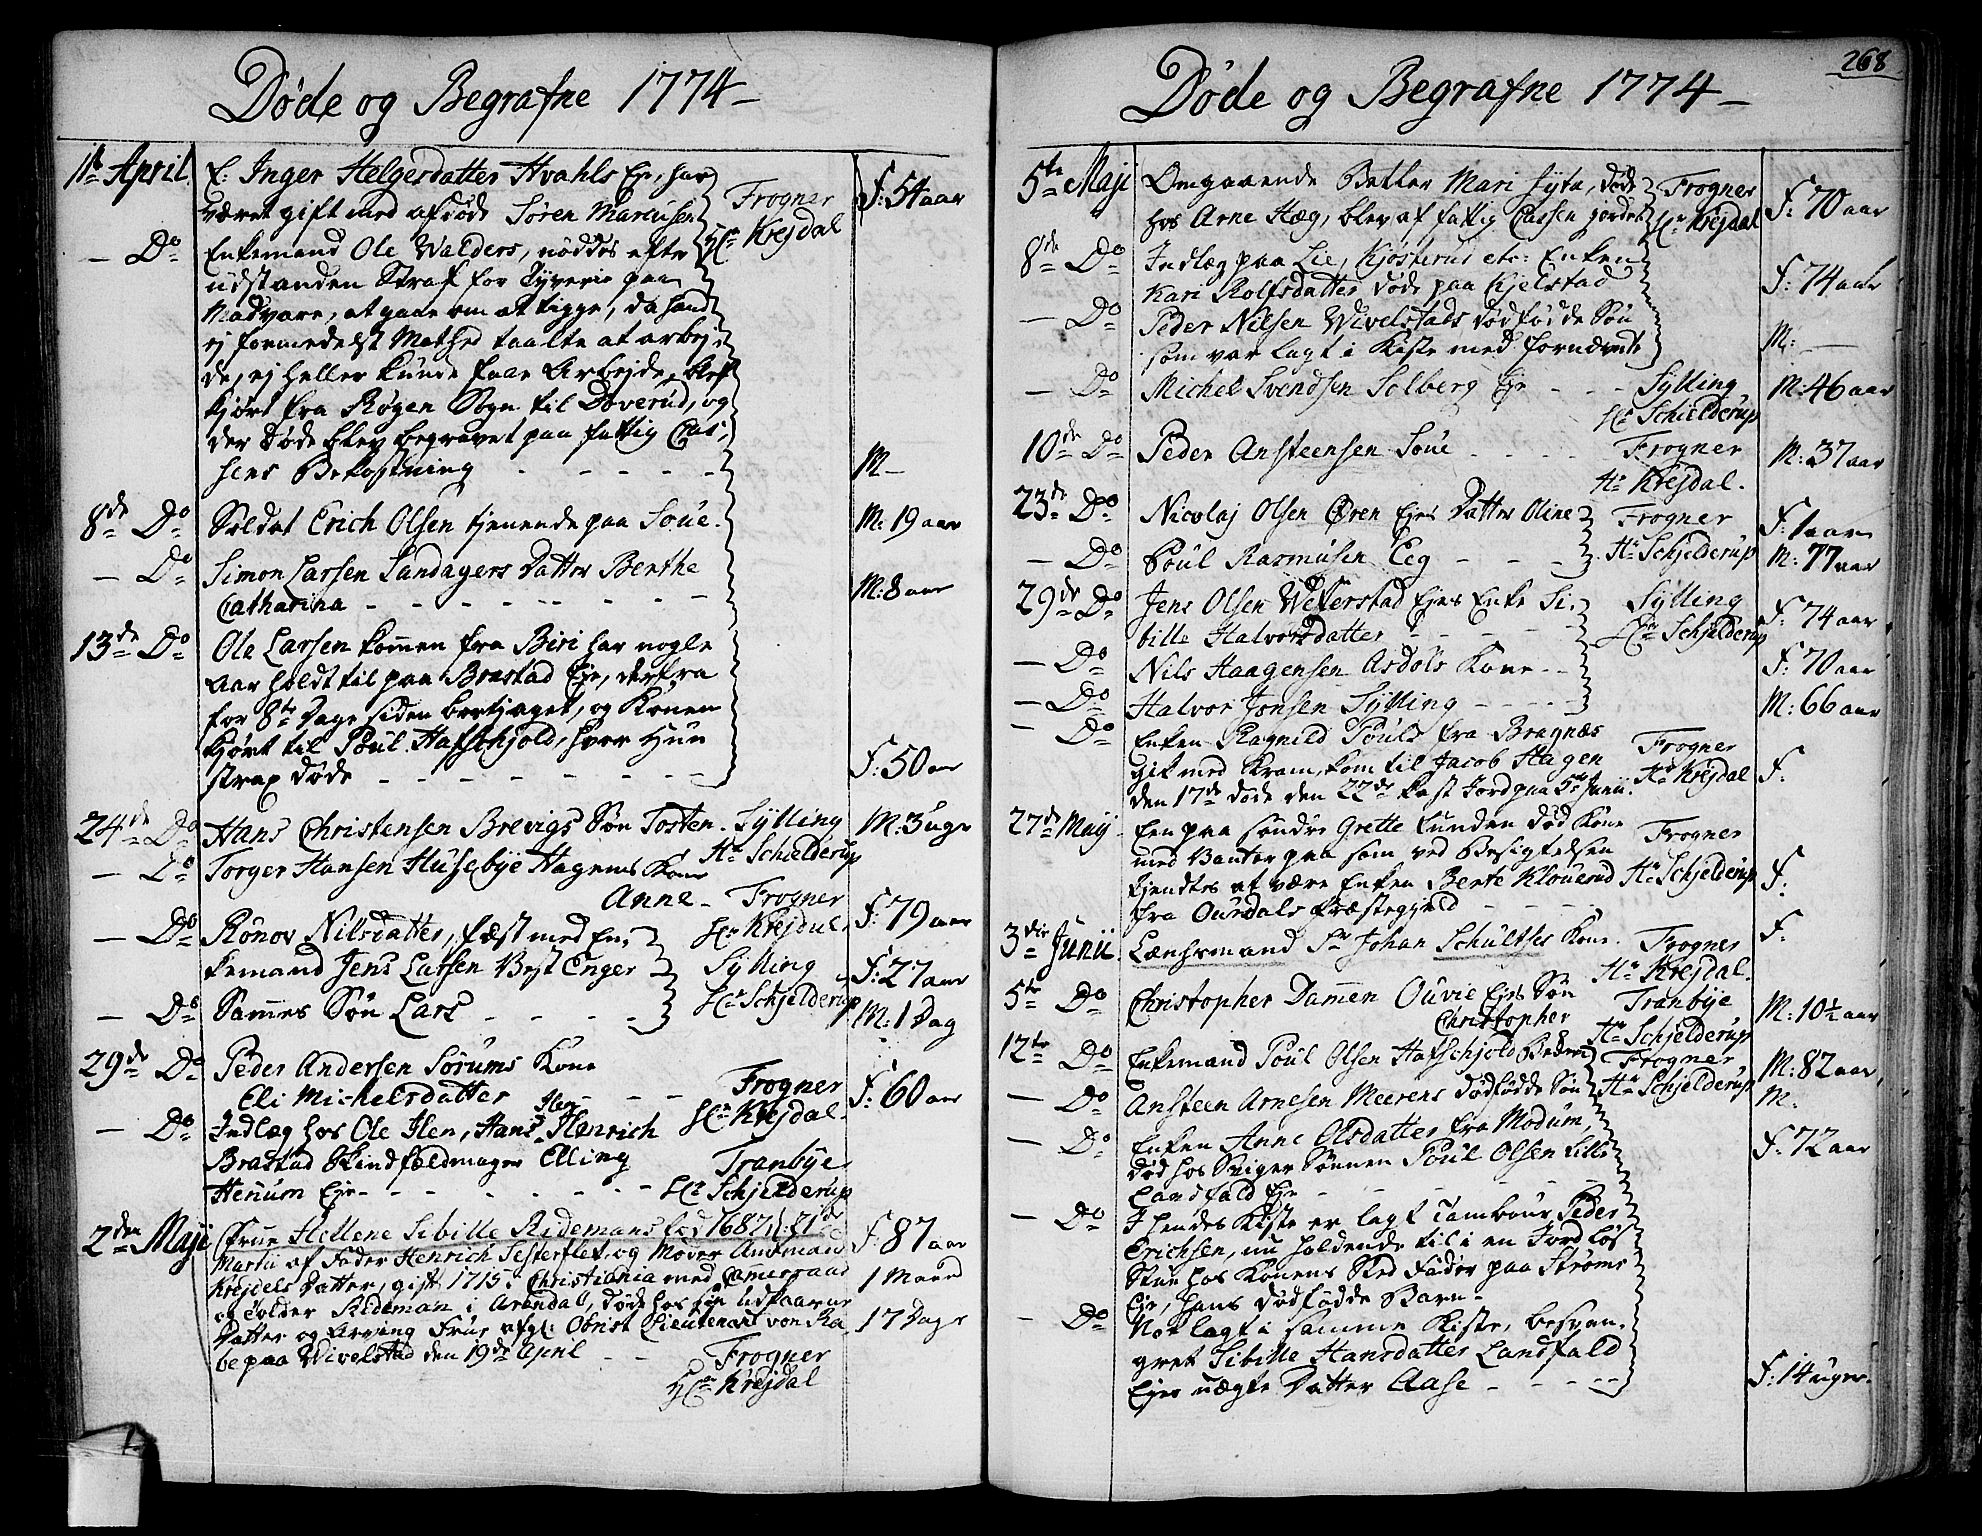 Døde og Begrafne 1774
1te April. E: Inger Helgersdatter Hvahls Eje, har
været gift med afdøde Søren Marcusen
Frogner
Hr Krejdal
F: 54 aar
— Do Enkemand Ole Walders, nøddes efter
udstanden Straf for Tyverie paa
Madvare, at gaae om at tigge, da hand
ej formedelst Mathed taalte at arbej-
de, ej heller kunde faae Arbejde, blef
kjørt fra Røgen Sogn til Doverud, og
der døde blev begravet paa fattig Cas-
sens Bekostning
M —
8de Do Soldat Erich Olsen tjenende paa Soue.
M: 19 aar
— Do Simon Larsen Sandagers Datter Berthe
Catharina
M: 8 aar
13de Do Ole Larsen kommen fra Biri har nogle
Aar holdt til paa Brastad Eje, derfra
for 8te Dage siden bortjaget, og Konen
kjørt til Poul Hafschjold, hvor Hun
strax døde
F: 50 aar
24de Do Hans Christensen Brevigs Søn Tosten. Sylling
Hr Schielderup
M: 3 uger
— Do Torger Hansen Husebye Hagens Kone
Anne - Frogner
Hr Krejdal
F: 79 aar
— Do Rønov Nilsdatter, fæst med En-
kemand Jens Larsen Best Enger
Sylling
Hr Schjelderup
F: 27 aar
— Do Sammes Søn Lars
M: 1 Dag
29de Do Peder Andersen Sørums Kone
Eli Michelsdatter
Frogner
Hr Krejdal
F: 60 aar
— Do Indlæg hos Ole Ilen, Hans Henrich
Ilen
Brastad Skindfældmager Elling
Henum Eje
Tranbye
Hr Schjelderup
2den Maji Frue Hellene Sibille Ridemans fød 1687 d: 21de
Martii af Fader Henrich Testerflet og Moder Amtmand
Krejdels Datter, gift 1715 i Christiania med Camerraad
og Tolder Rideman i Arendal, døde hos sin udkaarne
Datter og Arving Frue afgl: Obrist Lieutenant von Ra-
be paa Wivelstad den 19de April
Frogner
Hr Krejdal
F: 87 aar
1 Maaned
17 Dage
268
Døde og Begrafne 1774
5te Maji Omgaaende Betler Mari Syta, døde
hos Arne Hæg, blev af fattig Cassen jordet
Frogner
Hr Krejdal
F: 70 aar
8de Do Indlæg paa Lie, Kjøsterud etc: Enken
Kari Rolfsdatter døde paa Kjelstad
F: 74 aar
— Do Peder Nilsen Wivelstads dødfødde Søn
som var lagt i Kiste med fornævnte
M: —
— Do Michel Svendsen Solberg Eje
Sylling
Hr Schielderup
M: 46 aar
10de Do Peder Ansteensen Soue
Frogner
Hr Krejdal.
M: 37 aar
23de Do Nicolaj Olsen Øren Ejes Datter Oline
Frogner
Hr Schjelderup
F: 1 aar
— Do Poul Rasmusen Eeg
M: 77 aar
29de Do Jens Olsen Wefverstad Ejes Enke Si-
bille Halvorsdatter
Sylling
Hr Schjelderup
F: 74 aar
— Do Nils Haagensen Asdøls Kone
F: 70 aar
— Do Halvor Jonsen Sylling
M: 66 aar
— Do Enken Ragnild Pouls fra Bragnæs
gik med Kram, kom til Jacob Hagen
den 17de døde den 22de kast Jord paa 5te Junii.
Frogner
Hr Krejdal
F:
27de Maij Een paa søndre Grette funden død Kone
med Vanter paa som ved Besigtelsen
kjendtes at være Enken Berte Klouerud
fra Ourdals Præstegjeld
Frogner
Hr Schjelderup
F:
3die Junii. Lænsmand Sr Johan Schultses Kone.
Frogner
Hr Krejdal.
F:
5te Do Christopher Damen Ouvie Ejes Søn
Christopher
Tranbye
Hr Schjelderup
M: 10½ aar
12te Do Enkemand Poul Olsen Hafschjold
Frogner
Hr Schjelderup
M: 82 aar
— Do Ansteen Arnesen Meerens dødfødde Søn
M:
— Do Enken Anne Olsdatter fra Modum,
død hos Sviger Sønnen Poul Olsen Lille
Landfald Eje
F: 72 aar
— Do I hendes Kiste er lagt Tambour Peder
Erichsen, nu holdende til i en Jordløs
Stue hos Konens Sted Fader paa Strøms
Eje, hans dødfødde Barn
— Do Nok lagt i samme Kiste, besvan-
gret Sibille Hansdatter Landfald
Ejes uægte Datter Aase
F: 14 uger.